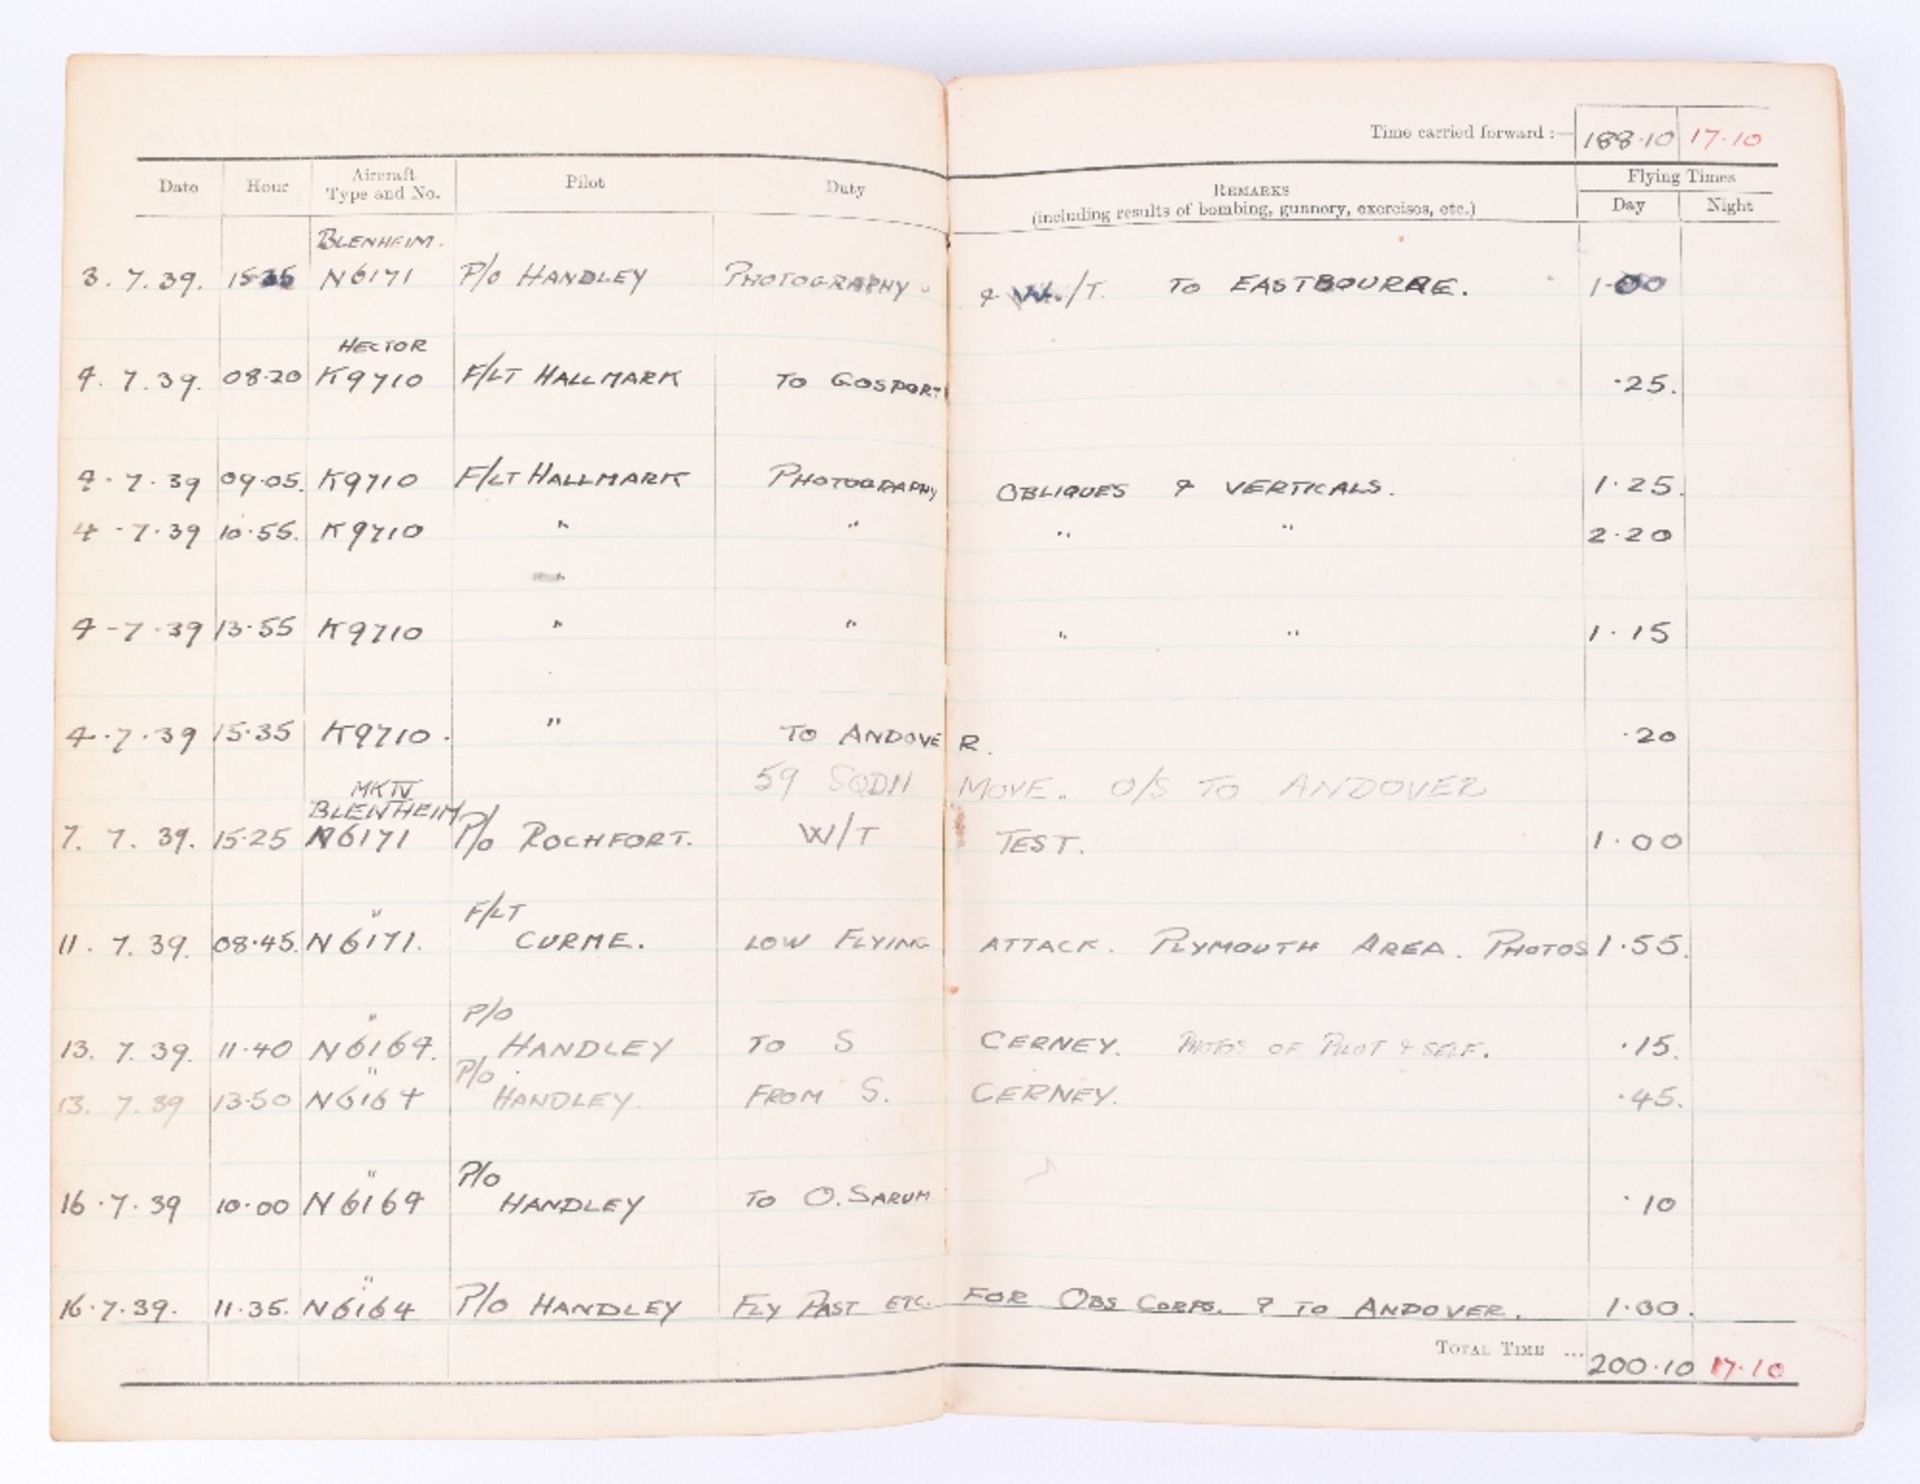 Time carried forward :— 188.10 17.10
Date Hour Aircraft Type and No. Pilot Duty REMARKS (including results of bombing, gunnery, exercises, etc.) Flying Times
Day Night
BLENHEIM.
3.7.39. N6171 P/O HANDLEY PHOTOGRAPHY & W./T. TO EASTBOURNE. 1.00
HECTOR
4.7.39. 08.20 K9710 F/LT HALLMARK TO GOSPORT .25.
4.7.39 09.05. K9710 F/LT HALLMARK PHOTOGRAPHY OBLIQUES & VERTICALS. 1.25.
4-7.39 10.55. K9710 " " " " 2.20
4-7.39 13.55 K9710 " " " " 1.15
4.7.39 15.35 K9710. " TO ANDOVER. .20
59 SQDN MOVE. O/S TO ANDOVER
MKIV
BLENHEIM
7.7.39. 15.25 N6171 P/O ROCHFORT. W/T TEST. 1.00
" F/LT
11.7.39. 08.45. N6171. CURME. LOW FLYING ATTACK. PLYMOUTH AREA. PHOTOS 1.55.
" P/O
13.7.39. 11.40 N6164. HANDLEY TO S CERNEY. PHOTOS OF PILOT & SELF. .15.
" P/O
13.7.39 13.50 N6164 HANDLEY. FROM S. CERNEY. .45.
" P/O
16.7.39 10.00 N6164 HANDLEY TO O. SARUM .10
"
16.7.39. 11.35. N6164 P/O HANDLEY FLY PAST ETC. FOR OBS CORPS. & TO ANDOVER. 1.00.
TOTAL TIME ... 200.10 17.10